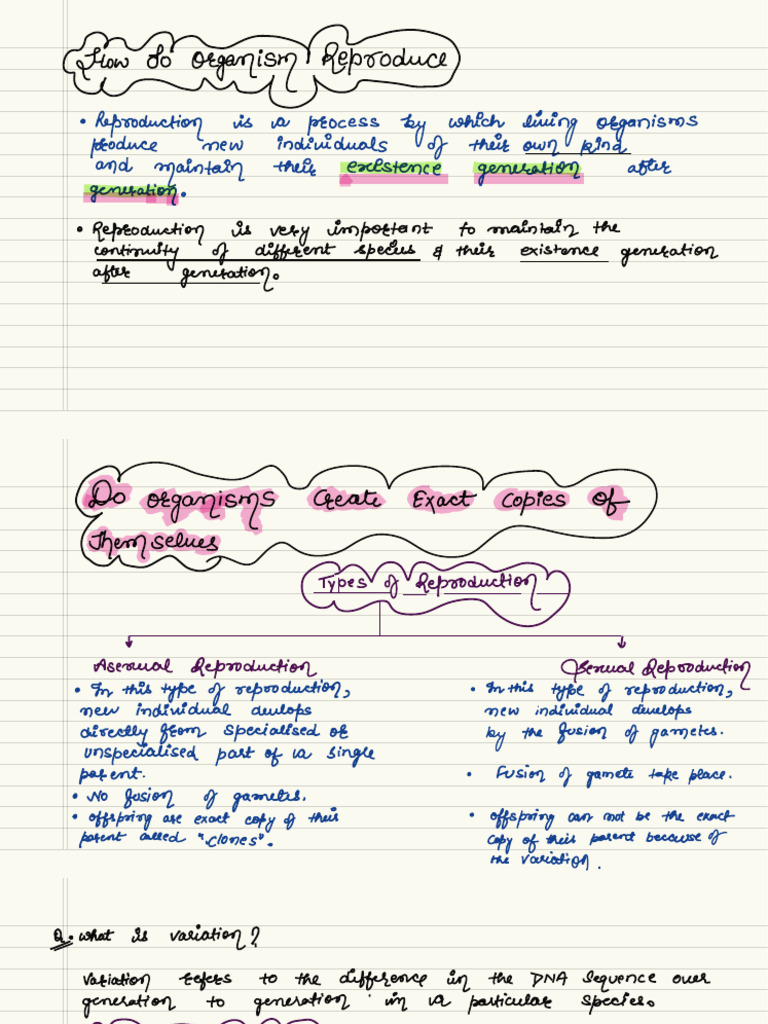 How do organism Reproduce
• Reproduction is a process by which living organisms
produce new individuals of their own kind
and maintain their existence generation after
generation.
• Reproduction is very important to maintain the
continuity of different species & their existence generation
after generation.
Do organisms Create Exact copies of
Themselves
Types of Reproduction
Asexual Reproduction
• In this type of reproduction,
new individual devlops
directly from specialised or
unspecialised part of a single
parent.
• No fusion of gametes.
• offspring are exact copy of their
parent called "clones".
Sexual Reproduction
• In this type of reproduction,
new individual develops
by the fusion of gametes.
• Fusion of gamete take place.
• offspring can not be the exact
copy of their parent because of
the variation.
Q. what is variation?
Variation refers to the difference in the DNA sequence over
generation to generation in a particular species.